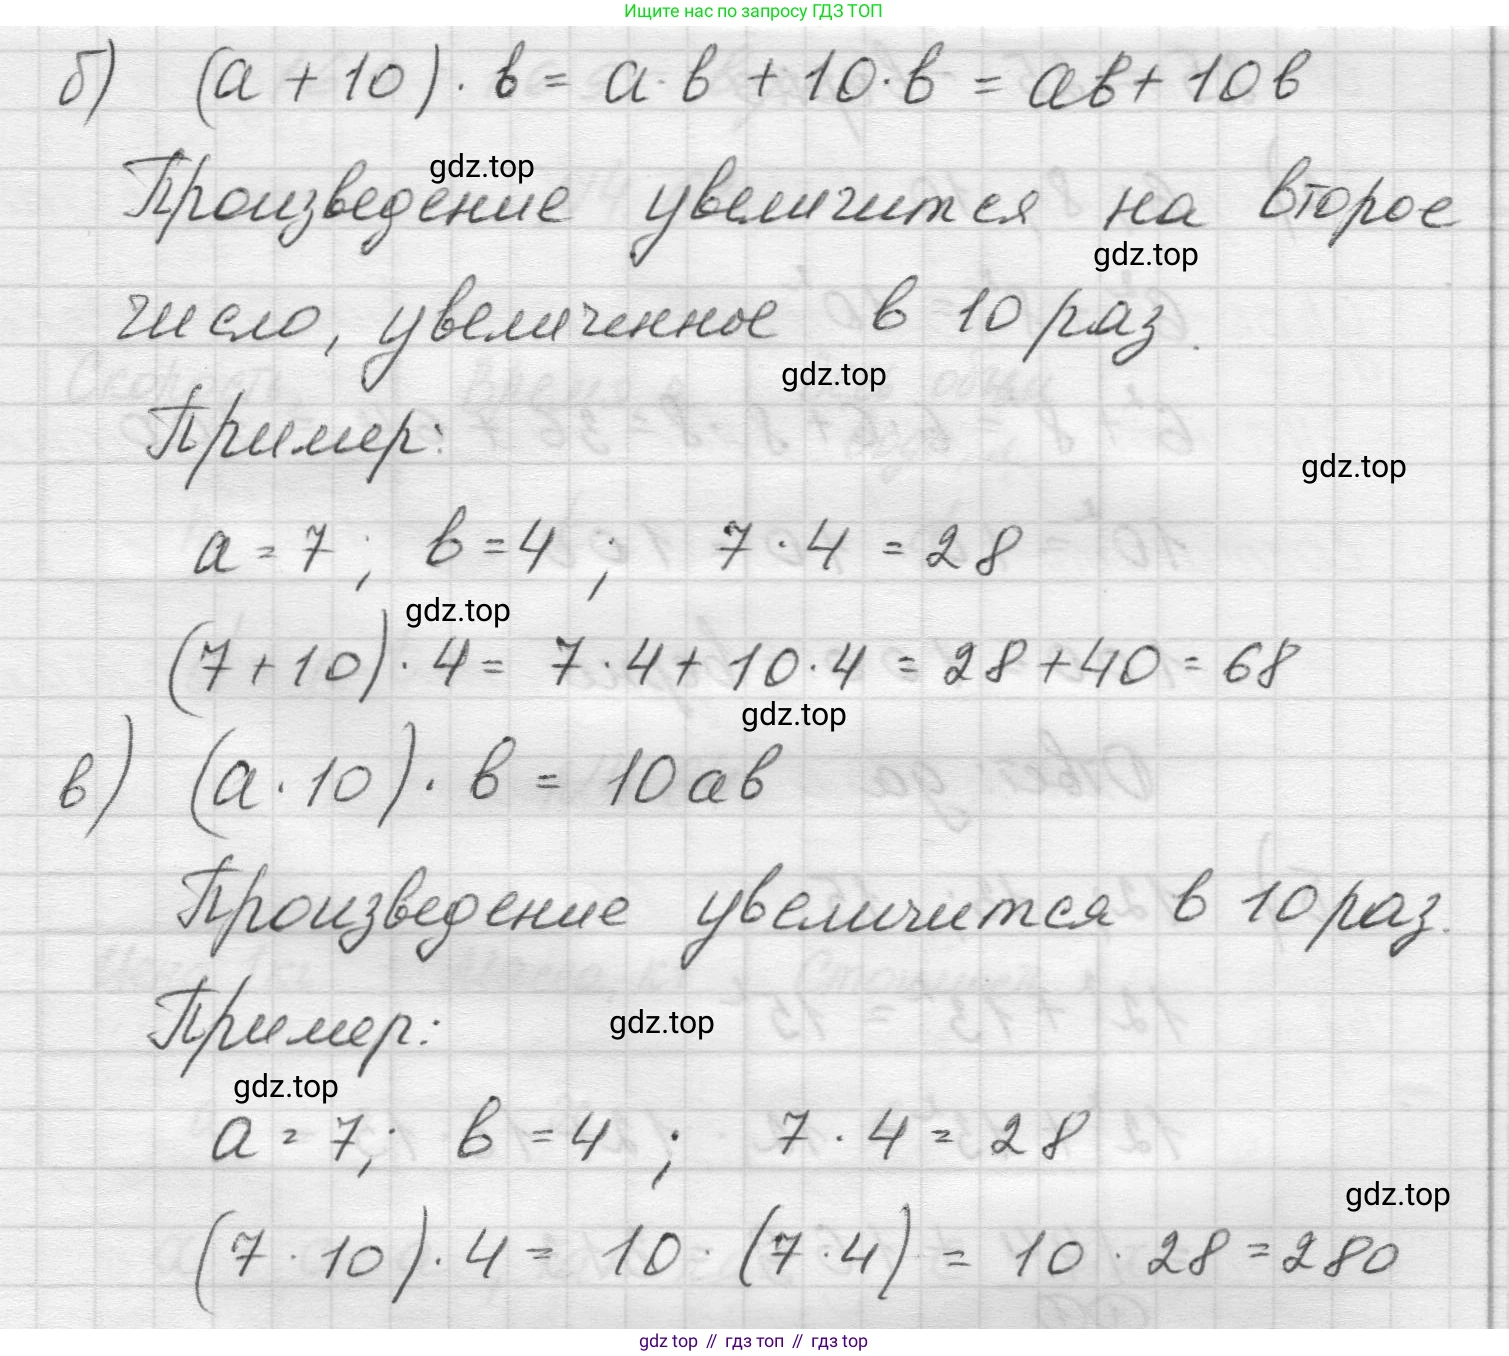 Ищите нас по запросу ГДЗ ТОП
б) (a + 10) · b = a · b + 10 · b = ab + 10b
gdz.top
Произведение увеличится на второе
gdz.top
число, увеличенное в 10 раз.
gdz.top
Пример:
gdz.top
a = 7; b = 4; 7 · 4 = 28
gdz.top
(7 + 10) · 4 = 7 · 4 + 10 · 4 = 28 + 40 = 68
gdz.top
в) (a · 10) · b = 10ab
Произведение увеличится в 10 раз.
Пример:
gdz.top
gdz.top
a = 7; b = 4; 7 · 4 = 28
gdz.top
(7 · 10) · 4 = 10 · (7 · 4) = 10 · 28 = 280
gdz top // гдз топ // гдз top